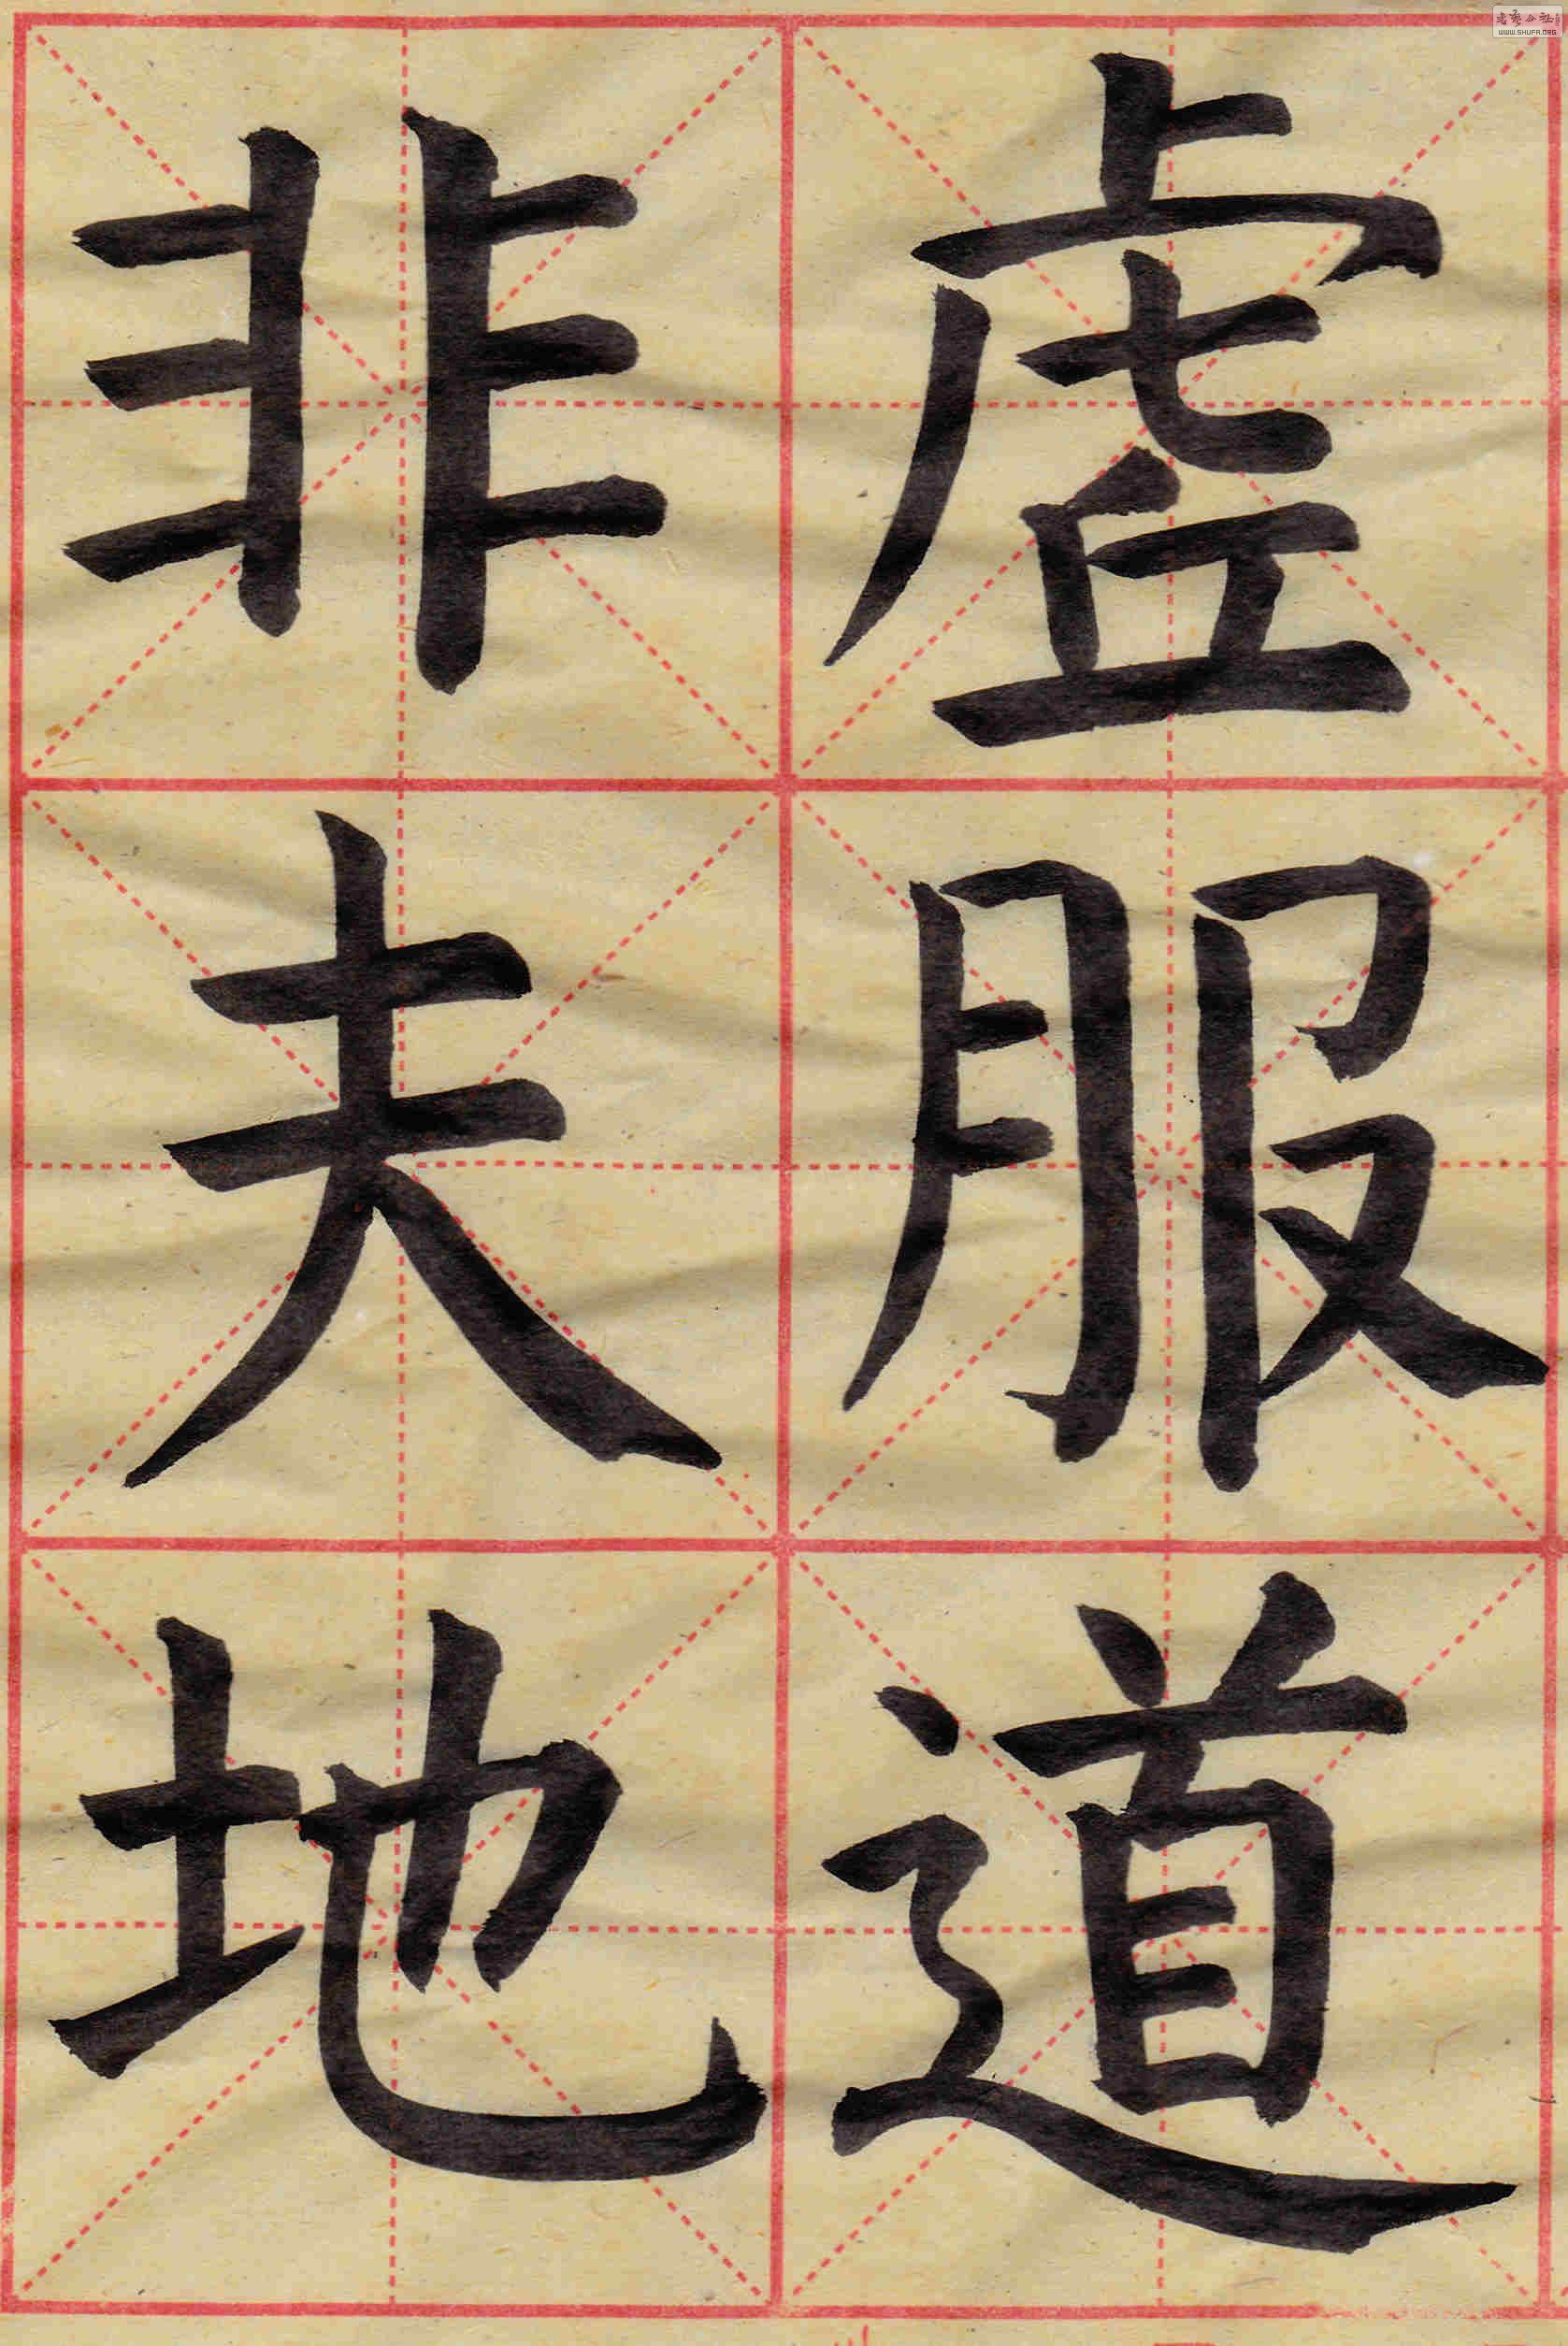 虚服道
非夫地
WWW.SHUFA.ORG